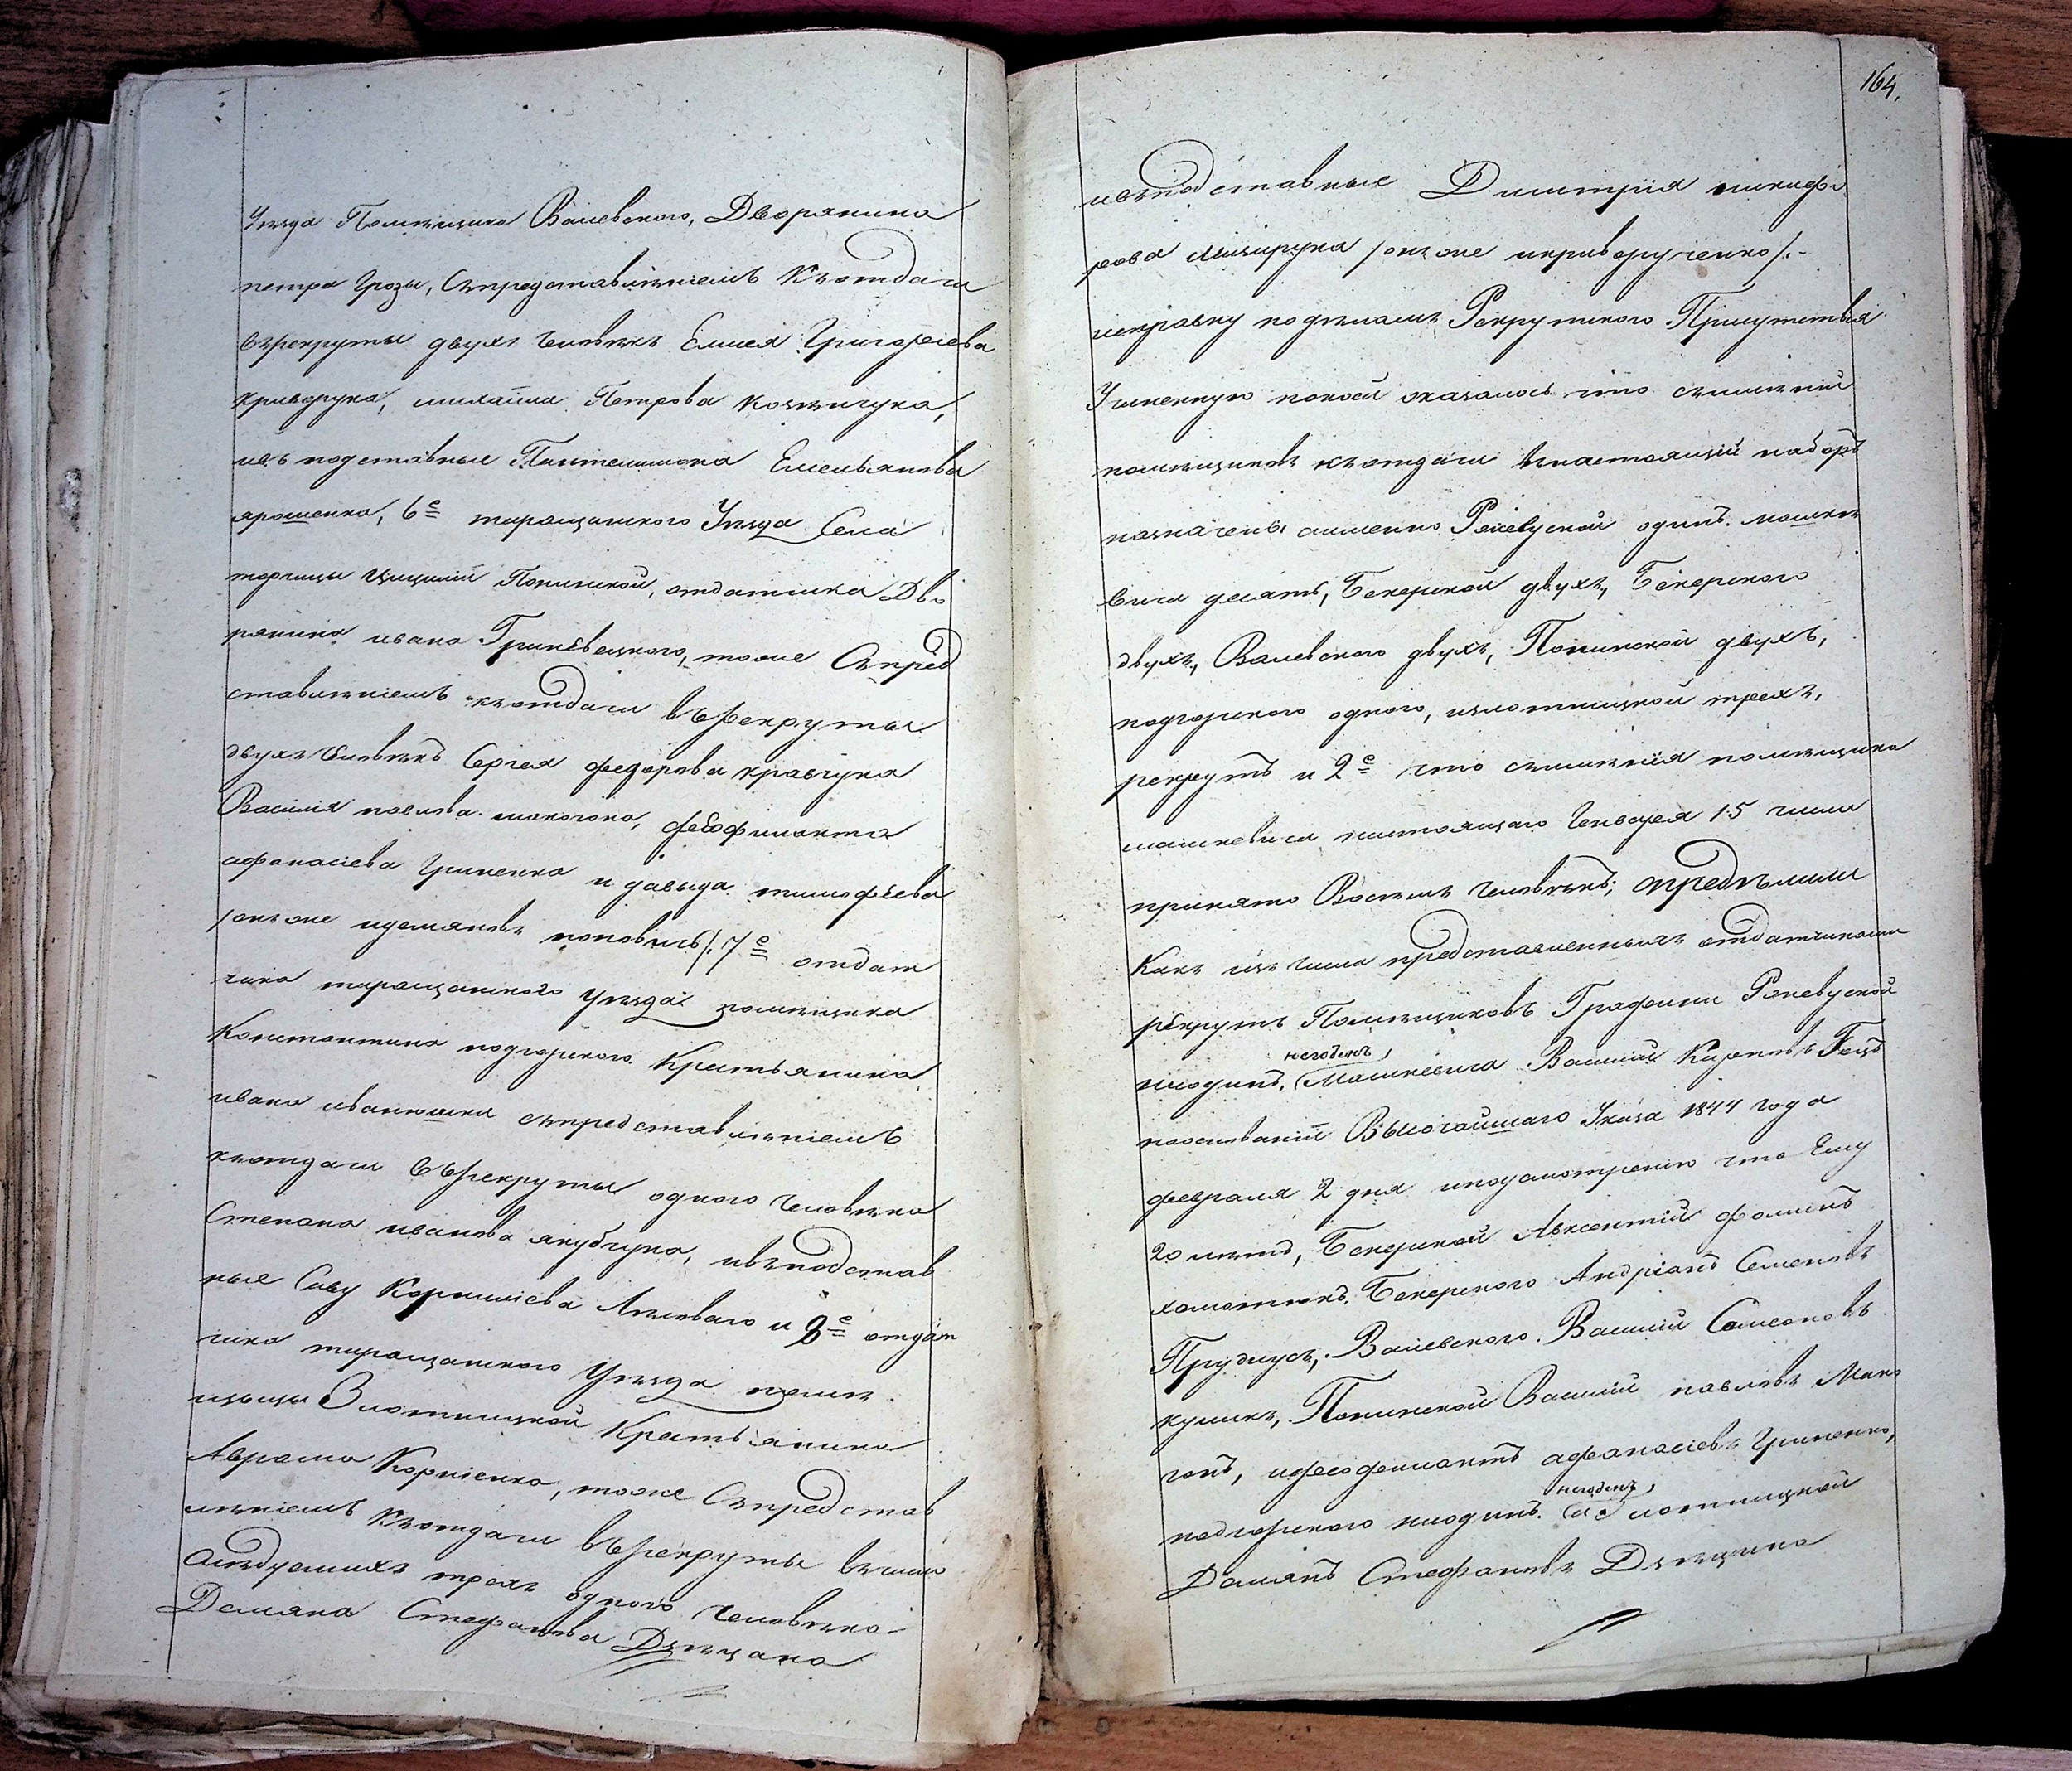 Уезда Помещика Валевского, Дворянина
петра Грозы, Спредставленіемъ Къотдачи
върекруты двухъ человекъ Елисея Григоріева
криворука, михайла Петрова
ивъ подставные Пантелимона Емельянова
ярошенка, 6е таращанского Уезда Села
торчицы Попинской, отдатчика Дво
рянина ивана Гриневецкого, тоже Спред
ставленіемъ къотдачи въ рекруты
двухъ человекъ Сергея федорова кравчука
Василія павлова макогона, феофилакта
афанасіева Гриненка и давыда тимофеева
/онъже идемяновъ поповичъ/. 7е отдат
чика таращанского Уезда помещика
Константина подгорского Крестьянина
ивана спредставленіемъ
къотдачи въ рекруты одного человека
Степана иванова якубчука, ивъподстав
ные Саву Корниліева и 8е отдат
чика таращанского Уезда поме
щицы Злотницкой Крестьянина
Аврама Корніенка, тоже Спредстав
леніемъ Къотдачи въ рекруты вчисло
следуемыхъ трехъ одного человека
Демяна Стефанова Дзецана
164.
ивъподставные Димитрія никифо
рова /онъже икриворученко/.-
исправку поделамъ Рекрутского Присутствія
Учиненную покоей оказалось что сыменій
помещиковъ къотдачи внастоящій наборъ
назначены аименно Ржевуской одинъ. машке
вича десять, Бекерской двухъ, Бекерского
двухъ, Валевского двухъ, Попинской двухъ,
подгорского одного, излотницкой трехъ,
рекрутъ и 2е что сыменія помещика
машкевича настоящаго Генваря 15 числа
принято Восемъ человекъ; определили
Какъ изъ числа представленныхъ отдатчиками
рекрутъ Помещиковъ Графини Ржевуской
негоденъ
ниодинъ, Машкевича Василій Гецъ
наоснованіи Высочайшаго Указа 1844 года
февраля 2 дня ипоусмотренію что Ему
20 летъ, Бекерской Авксентій фоминъ
хомотюкъ. Бекерского Андріанъ Семеновъ
Прудиусъ, Валевского Василій Самсоновъ
куликъ, Попинской Василій павловъ Мако
гонъ, ифеофилактъ афанасіевъ Гриненко,
негоденъ
подгорского ниодинъ. и Злотницкой
Даміянъ Стефановъ Дзецина